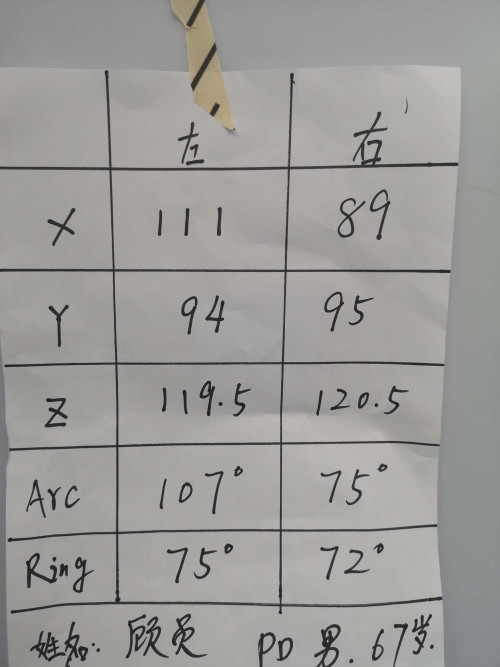 左 右
X 111 89
Y 94 95
Z 119.5 120.5
Arc 107° 75°
Ring 75° 72°
姓名: 顾员 PD 男. 67岁.